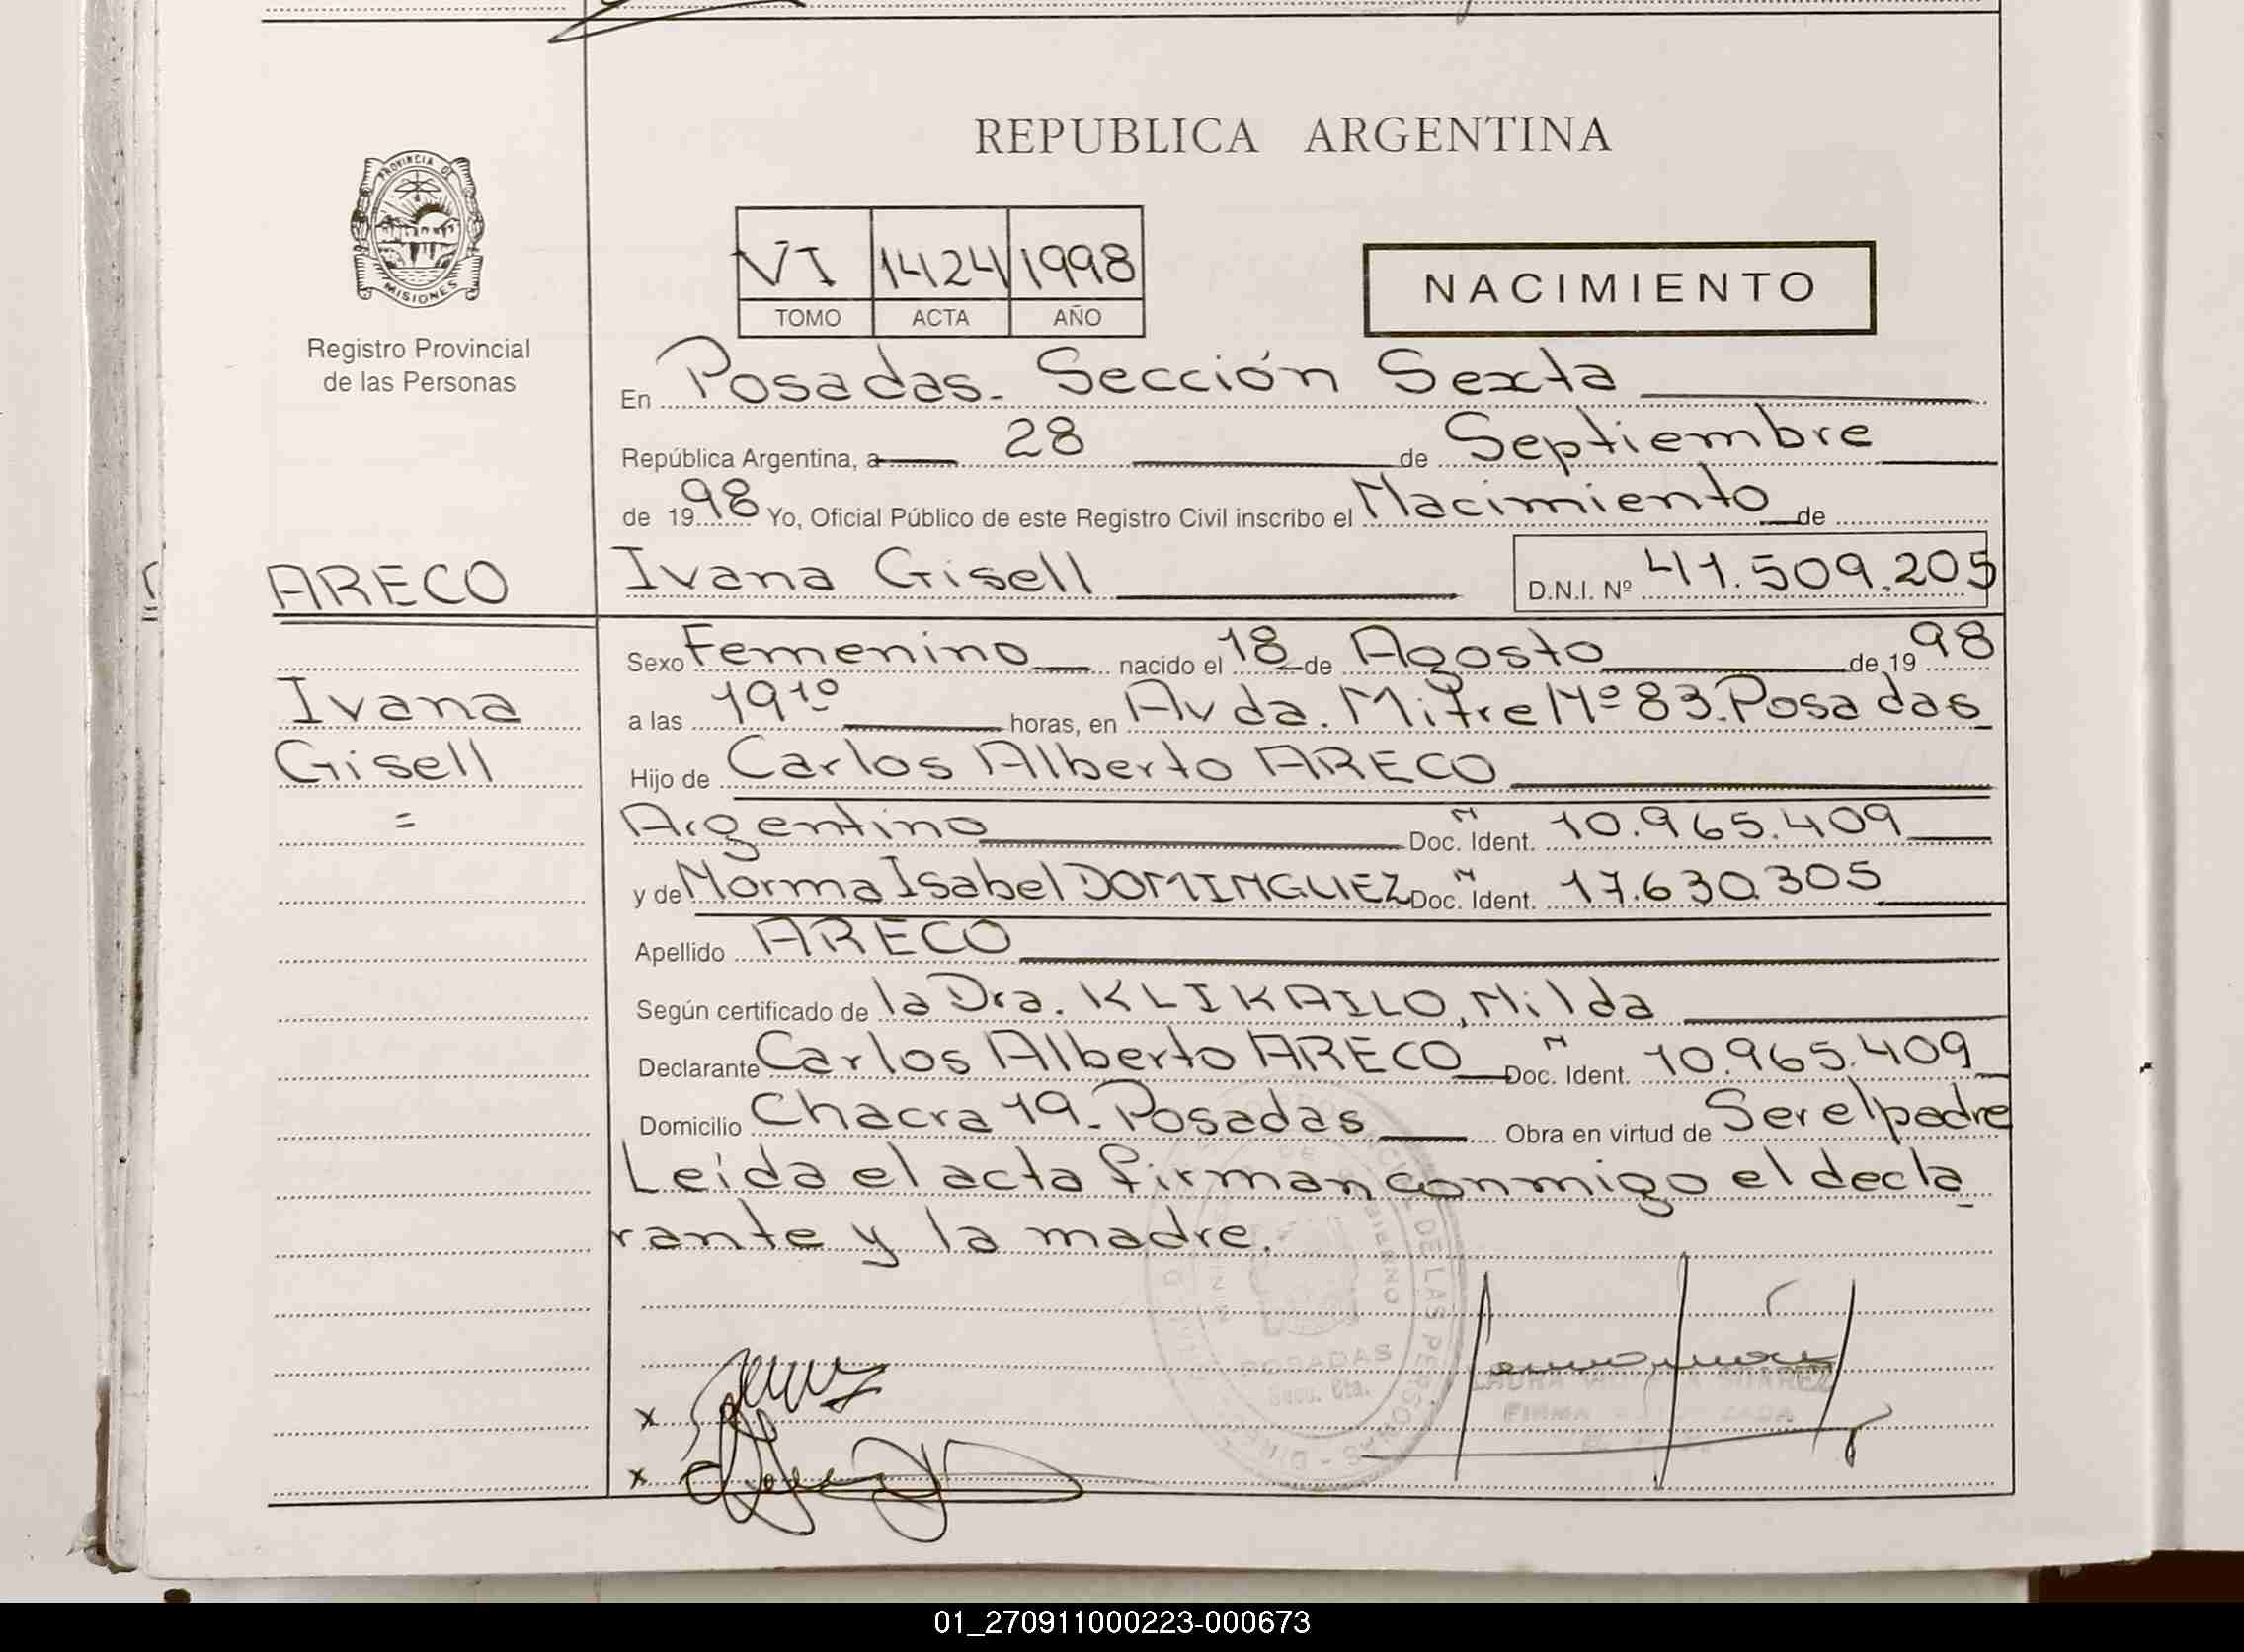 REPUBLICA ARGENTINA
PROVINCIA DE
MISIONES
Registro Provincial
de las Personas
VI 1424 1998
TOMO ACTA AÑO
NACIMIENTO
En Posadas. Sección Sexta
República Argentina, a 28 de Septiembre
de 1998 Yo, Oficial Público de este Registro Civil inscribo el Nacimiento de
ARECO Ivana Gisell D.N.I. Nº 41.509.205
Sexo Femenino nacido el 18 de Agosto de 1998
Ivana
a las 19¹⁰ horas, en Avda. Mitre Nº 83. Posadas
Gisell
Hijo de Carlos Alberto ARECO
=
Argentino Doc. N Ident. 10.965.409
y de Norma Isabel DOMINGUEZ Doc. N Ident. 17.630.305
Apellido ARECO
Según certificado de la Dra. KLIKAILO, Nilda
Declarante Carlos Alberto ARECO Doc. N Ident. 10.965.409
Domicilio Chacra 19. Posadas Obra en virtud de Ser el padre
Leída el acta firman conmigo el decla
rante y la madre.
DE LAS PERSONAS
POSADAS
Secc. 6ta.
LAURA SUAREZ
FIRMA
x
x
01_270911000223-000673